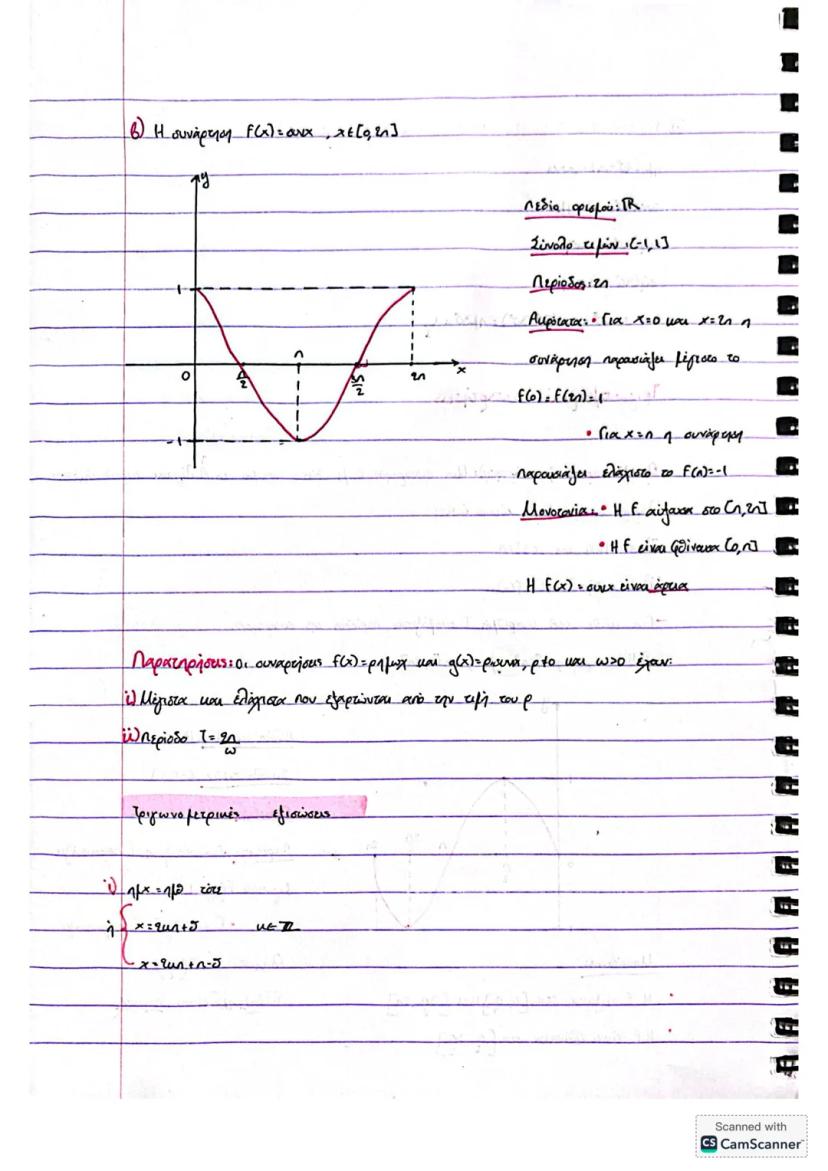 β) Η συνάρτηση f(x)=συνx , x∈[0,2π]
y
Πεδίο ορισμού: ℝ
Σύνολο τιμών: [-1,1]
1
Περίοδος: 2π
Ακρότατα: • Για x=0 και x=2π η
π
συνάρτηση παρουσιάζει μέγιστο το
0 π/2 3π/2 2π x
f(0)=f(2π)=1
• Για x=π η συνάρτηση
-1
παρουσιάζει ελάχιστο το f(π)=-1
Μονοτονία: • Η f αύξουσα στο [π,2π]
• Η f είναι φθίνουσα [0,π]
Η f(x)=συνx είναι άρτια
Παρατηρήσεις: Οι συναρτήσεις f(x)=ρημωx και g(x)=ρσυνωx, ρ≠0 και ω>0 έχουν:
i) Μέγιστα και ελάχιστα που εξαρτώνται από την τιμή του ρ
ii) Περίοδο T=2π/ω
Τριγωνομετρικές εξισώσεις
i) ημx=ημθ τότε
ή { x=2κπ+θ κ∈ℤ
x=2κπ+π-θ
Scanned with
CS CamScanner